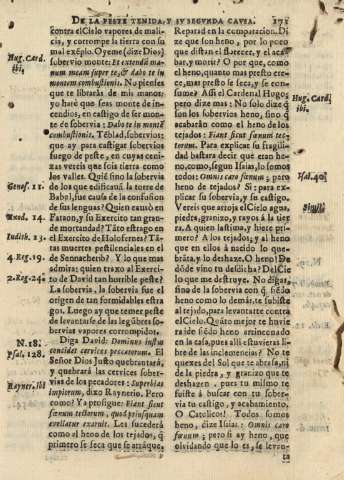 DE LA PESTE TENIDA, Y SU SEGUNDA CAUSA. 171
contra el Cielo vapores de mali-
cia, y corrompe la tierra con su
mal exẽplo. Oyeme (dize Dios)
sobervio monte: Et extendã ma-
num meam super te, & dabo te in
montem combustionis. No pienses
que te librarás de mis manos:
yo haré que seas monte de in-
cendios, en castigo de ser mon-
te de sobervia: Dabo te in montẽ
combustionis. Tẽblad, sobervios:
que ay para castigar sobervios
fuego de peste, en cuya ceni-
verèis que sois tierra como
los valles. Quiẽ sino la sobervia
de los que edificauã la torre de
Babel, fue causa de la confusion
de sus lenguas? Quien causó en
Faraon, y su Exercito tan gran-
de mortandad? Tãto estrago en
el Exercito de Holofernes? Tã-
tas muertes pestilenciales en el
de Sennacherib? Y lo que mas
admira: quien traxo al Exerci-
to de David tan horrible peste?
La sobervia, la sobervia fue el
origen de tan formidables estra-
gos. Luego ay que temer peste
de levantarse de las legũbres so-
bervias vapores corrompidos.
Diga David: Dominus iustus
concidet cervices peccatorum. El
Señor Dios Justo quebrantará,
y quebrará las cervices sober-
vias de los pecadores: Superbias
impiorum, dixo Raynerio. Pero
como? Ya prosigue: Fiant sicut
fœnum tectorum, quod priusquam
evellatur exaruit. Les sucederá
como al heno de los tejados, q̃
primero se seca que se arranque,
Hug. Card.
ibi.
Genes. 11.
Exod. 14.
Iudith. 13.
4. Reg. 19.
2. Reg. 24.
N. 18.
Psal. 128.
Rayner. ibi
Reparad en la comparacion. Di
ze que son heno, por lo poco
que distan el florecer, y el aca-
bar, y morir? O por que, como
el heno, quanto mas presto cre-
ce, mas presto se seca, y se con-
sume? Assi el Cardenal Hugo;
pero dize mas: No solo dize q̃
son los sobervios heno, sino q̃
acabarán como el heno de los
tejados: Fiant sicut fœnum tec-
torum. Para explicar su fragili-
dad bastara decir que eran he-
no, como, segun Isaias, lo somos
todos: Omnis caro fœnum; pero
heno de tejados? Si: para ex-
plicar su sobervia, y su castigo.
Vereis que arroja el Cielo agua,
piedra, granizo, y rayos á la tier
ra. A quien lastima, y hiere pri-
mero? A los tejados; y al heno
que en ellos à nacido lo que-
brãta, y lo deshaze. O heno! De
dõde vino tu desdicha? Del Cie
lo que me destruye. No digas,
sino de la sobervia con q̃, siẽdo
heno como lo demás, te subiste
al tejado, para levantarte contra
el Cielo. Quãto mejor te huvie
ra ido siẽdo heno arrinconado
en la casa, pues alli estuvieras li-
bre de las inclemencias? No te
quexes del Sol que te abrasa, ni
de la piedra, y granizo que te
deshazen, pues tu mismo te
fuiste á buscar con tu sober-
via tu castigo, y acabamiento.
O Catolico! Todos somos
heno, dize Isaias: Omnis caro
fœnum; pero si ay heno, que
olvidando lo que es, se levan-
Hug. Card.
ibi.
Isai. 40.
Simil.